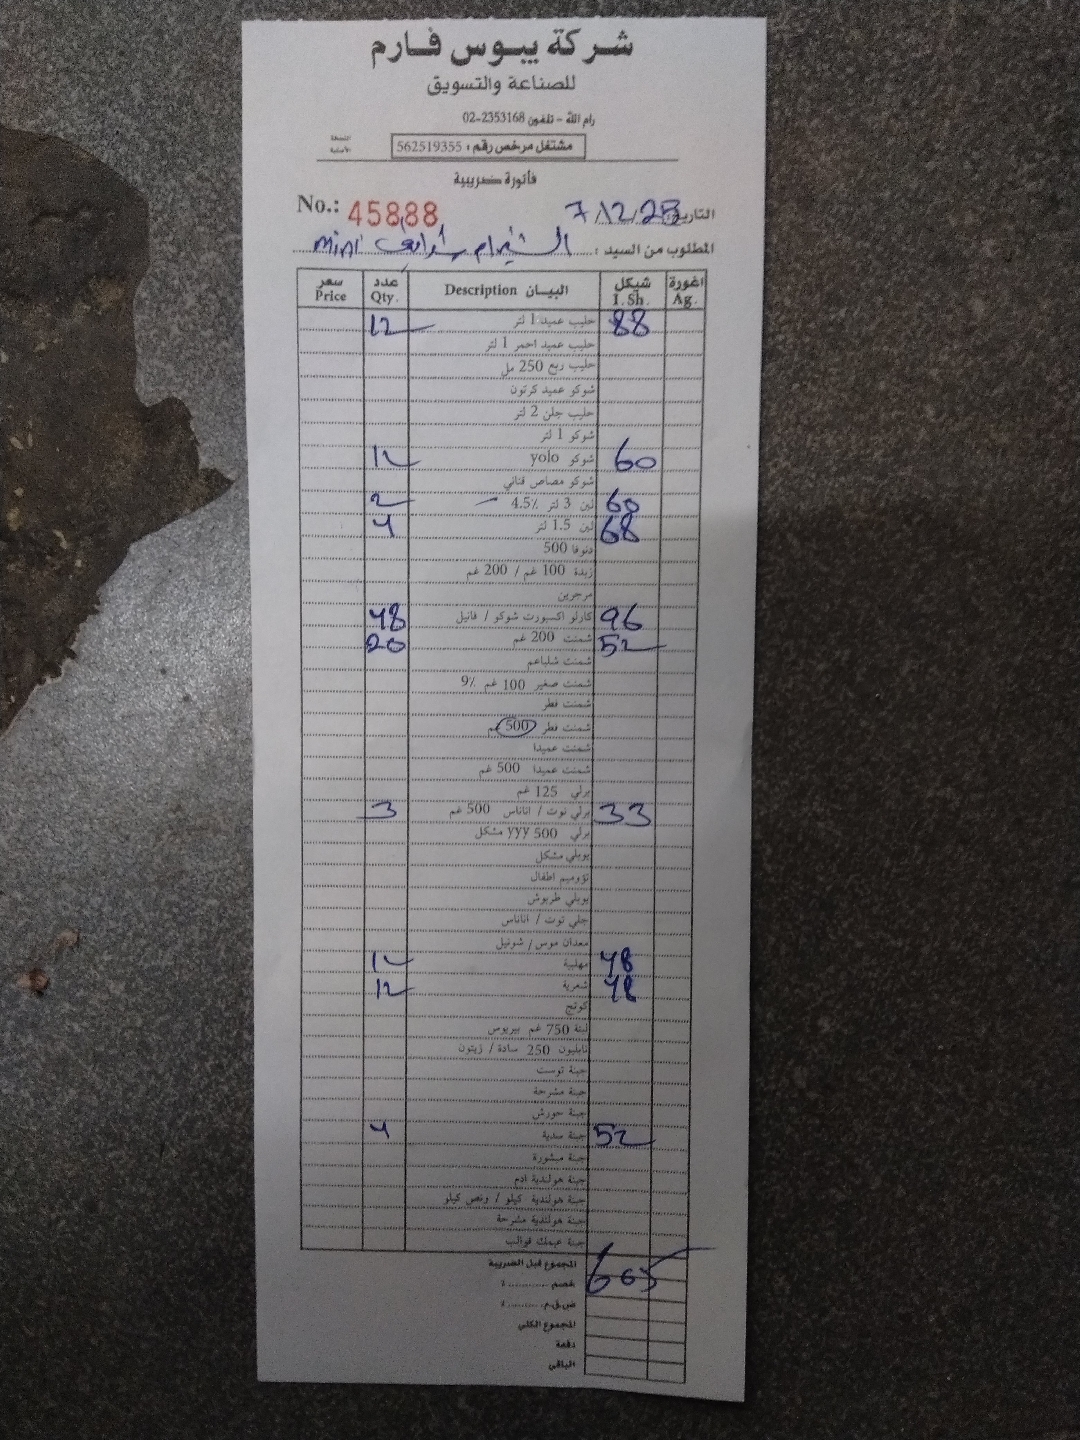 شركة يبوس فارم
للصناعة والتسويق
رام الله - تلفون 2353168-02
النسخة الأصلية
مشتغل مرخص رقم: 562519355
فاتورة ضريبية
No.: 45888
التاريخ: 7/12/25
المطلوب من السيد:
سعر Price عدد Qty. البيــان Description شيكل I.Sh. اغورة Ag.
12 حليب عميد 1 لتر 88
حليب عميد احمر 1 لتر
حليب ربع 250 مل
شوكو عميد كرتون
حليب جلن 2 لتر
شوكو 1 لتر
12 شوكو yolo 60
شوكو مصاص قناني
2 لبن 3 لتر 4.5% 60
4 لبن 1.5 لتر 68
دنوفا 500
زبدة 100 غم / 200 غم
مرجرين
48 كارلو اكسبورت شوكو / فانيل 96
20 شمنت 200 غم 52
شمنت شلباعم
شمنت صغير 100 غم 9%
شمنت فطر
شمنت فطر 500 غم
شمنت عميدا
شمنت عميدا 500 غم
برلي 125 غم
3 برلي توت / اناناس 500 غم 33
برلي 500 yyy مشكل
يوبلي مشكل
تؤوميم اطفال
يوبلي طربوش
جلي توت / اناناس
معدان موس / شونيل
12 مهلبية 48
12 شعرية 48
كوتج
لبنة 750 غم بيريوس
نابليون 250 سادة / زيتون
جبنة توست
جبنة مشرحة
جبنة حورش
4 جبنة سدية 52
جبنة مبشورة
جبنة هولندية ادم
جبنة هولندية كيلو / ونص كيلو
جبنة هولندية مشرحة
جبنة عيمك قوالب
المجموع قبل الضريبة 605
خصم ........... %
ض.ق.م. ......... %
المجموع الكلي
دفعة
الباقي